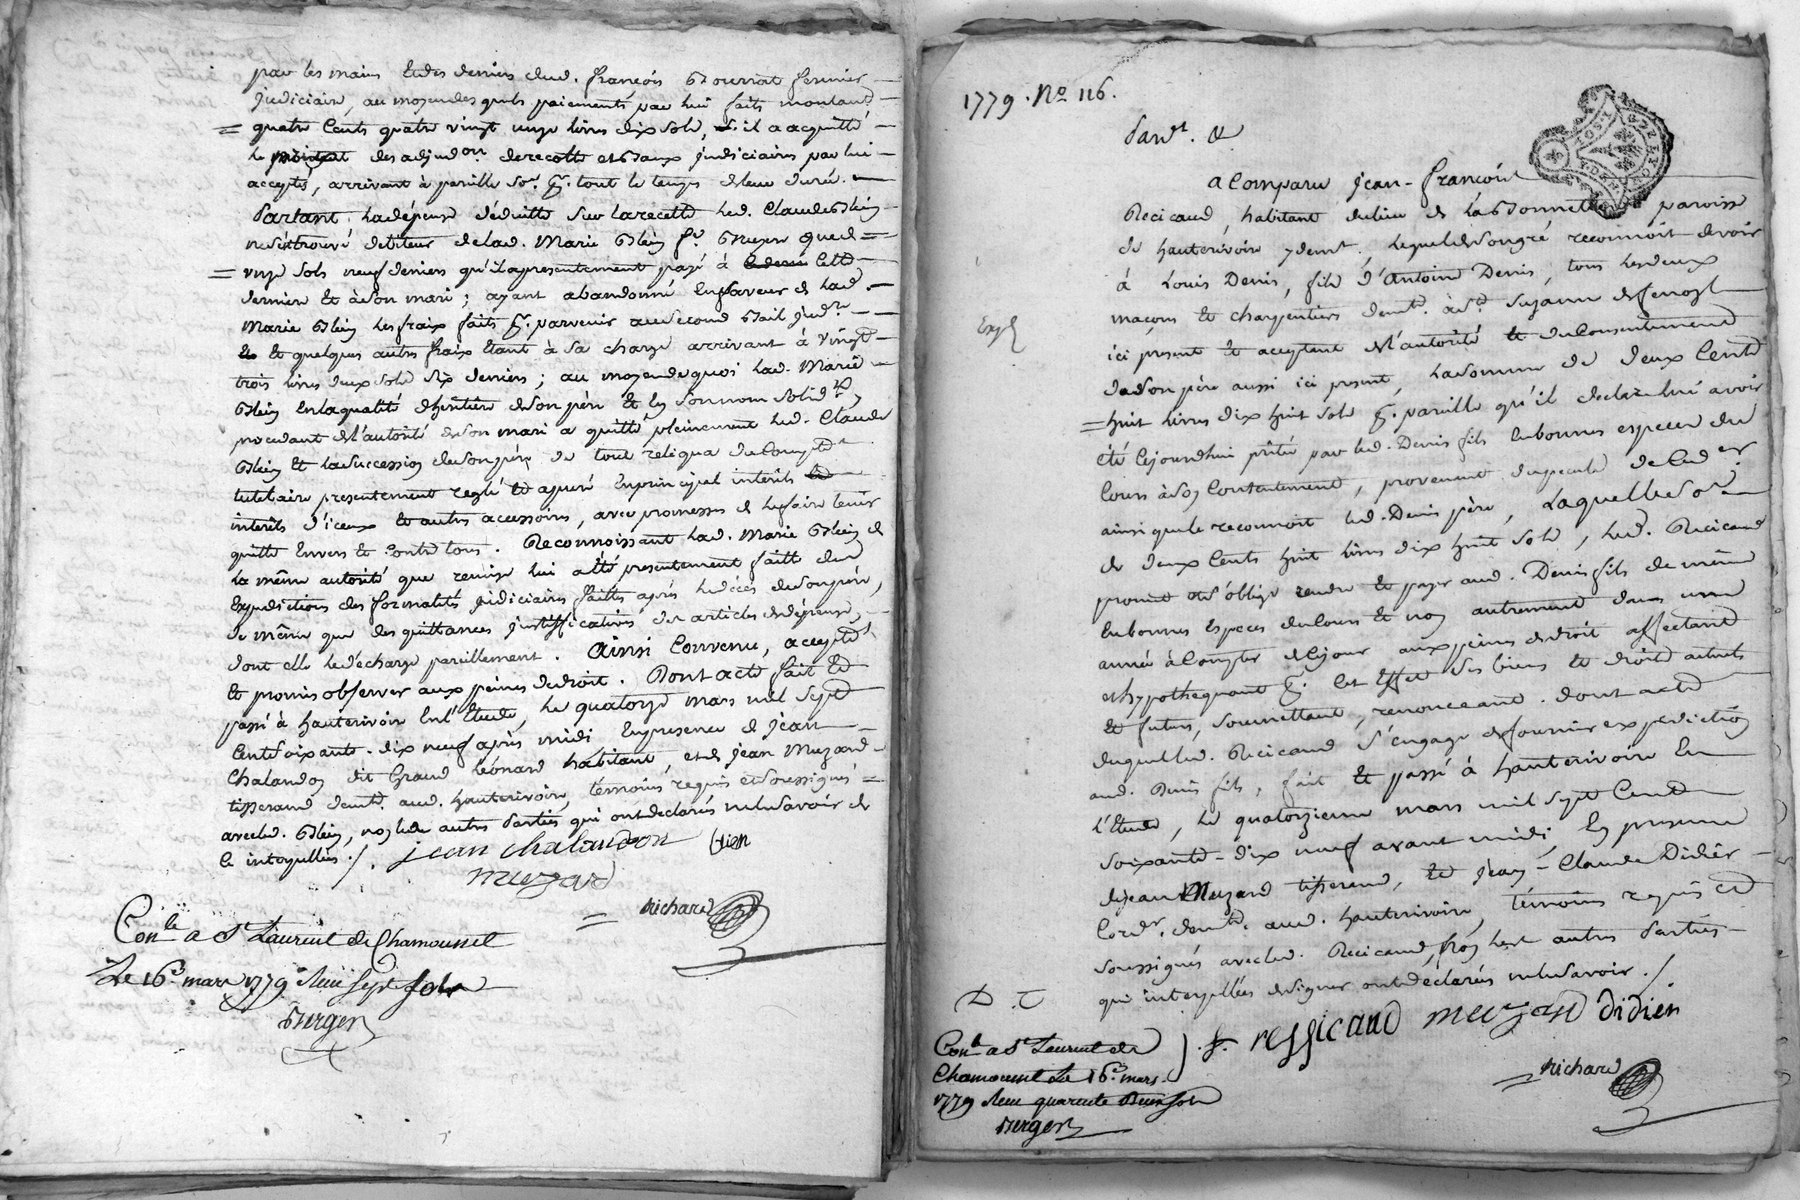 par les mains et des deniers dud. françois Bourrat fermier
judiciaire, au moyen desquels paiements par lui faits montant
quatre cents quatre vingt onze livres dix sols, il a acquitté
le des adjudon. de recolte et Baux judiciaires par lui
acceptés, arrivant à pareille so.e p. tout le temps de leur durée.
Partant la dépense déduitte sur la recette led. Claude Blein
ne s'est trouvé debiteur de lad. Marie Blein f.e que de
onze sols neuf deniers qu'il a presentement payé à cette
derniere et à son mari ; ayant abandonné en faveur de lad.
Marie Blein les fraix faits p. parvenir au second Bail jud.re
et quelques autres fraix étant à sa charge arrivant à vingt
trois livres deux sols six deniers ; au moyen de quoi lad. Marie
Blein en la qualité d'héritiere de son père et en son nom solid.t
procedant de l'autorité de son mari a quitté pleinement led. Claude
Blein et la succession de son père de tout reliqua du compte
tutelaire presentement reglé et apuré en principal interets
interêts d'iceux et autres accessoires, avec promesses de le faire tenir
quitte envers et contre tous. Reconnoissant lad. Marie Blein de
la même autorité que remise lui a été presentement faitte des
expeditions des formalités judiciaires faittes après le décès de son père,
de même que des quittances justifficatives des articles de dépense,
dont elle le décharge pareillement. Ainsi convenu, accepté
et promis observer aux peines de droit. Dont acte fait et
passé à hauterivoire en l'Etude, le quatorze mars mil sept
cent soixante-dix neuf après midi en presence de jean
Chalandon dit Grand Léonard habitant, et de jean Muzard
tisserand dem.t aud. hauterivoire, témoins requis et soussignés
avec led. Blein, non led. autres Parties qui ont declarés ne le savoir de
ce interpellées ./. jean chalandon blein
muzard
richard
Con.le a S.t Laurent de Chamousset
Le 16.e mars 1779 Reçu sept sols
Burger
1779. No. 116.
Pard.t &
a Comparu jean-françois
Recicaud habitant du lieu de la Bonnet paroisse
de hauterivoire y dem.t, lequel de son gré reconnoit devoir
à Louis Denis, fils d'Antoine Denis, tous les deux
maçons et charpentiers dem.t à S.t
ici present et acceptant de l'autorité et du consentement
de son père aussi ici present, la somme de deux cents
huit livres dix huit sols p. pareille qu'il declare lui avoir
été ce jourdhui prêtée par led. Denis fils en bonnes especes du
cours à son contentement, provenant du pecule de led.
ainsi que le reconnoit led. Denis père, Laquelle so.e
de deux cents huit livres dix huit sols, led. Recicaud
promet et s'oblige rendre et payer aud. Denis fils de même
en bonnes especes du cours et non autrement dans une
année à compter de ce jour aux peines de droit affectant
et hypothequant p. cet effet ses biens et droits actuels
et futurs, soumettant, renonceant. dont acte
duquel led. Recicaud s'engage de fournir expedition
aud. Denis fils, fait et passé à hauterivoire en
l'Etude, le quatorzieme mars mil sept cent
soixante-dix neuf avant midi, en presence
de jean Muzard tisserand, et jean-Claude Didier
Cord.r dem.t aud. hauterivoire, témoins requis et
soussignés avec led. Recicaud, non les autres Parties
qui interpellées de signer ont déclarés ne le savoir ./.
D. T
j. f. ressicaud muzard didier
Con.le a S.t Laurent de
Chamousset Le 16.e mars
1779 Reçu quarente deux sols
Burger
richard